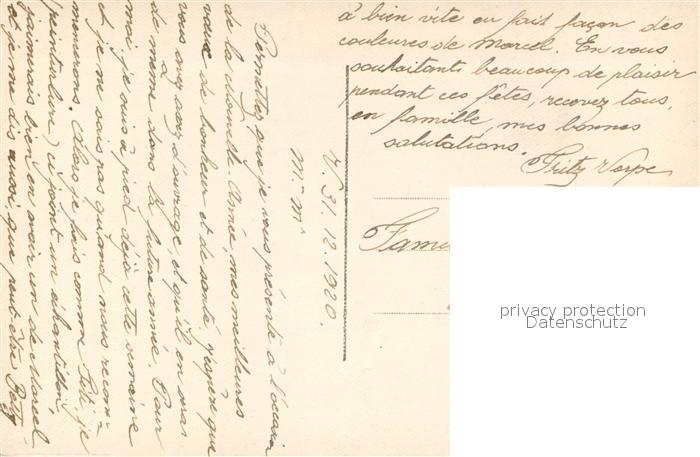 V. 31. 12. 1920.
Mr Mr
Permettez que je vous présente à l'occasion
de la nouvelle Année, mes meilleures
vœux de bonheur et de santé. J'espère que
vous avez assez d'ouvrage, et qu'il en sera
de même dans la future année. Pour
moi je suis à pied déjà cette semaine
et je ne sais pas quand nous recom-
mencerons. Alors je fais comme Puti, je
peinturlure, ci joint un échantillon,
j'aimerais bien en avoir un de Marcel
et je me dis aussi que peut être Betty
à bien vite eu fait façon des
couleures de Marcel. En vous
souhaitant beaucoup de plaisir
pendant ces fêtes, recevez tous,
en famille, mes bonnes
salutations.
Fritz Vorpe
Fami
privacy protection
Datenschutz